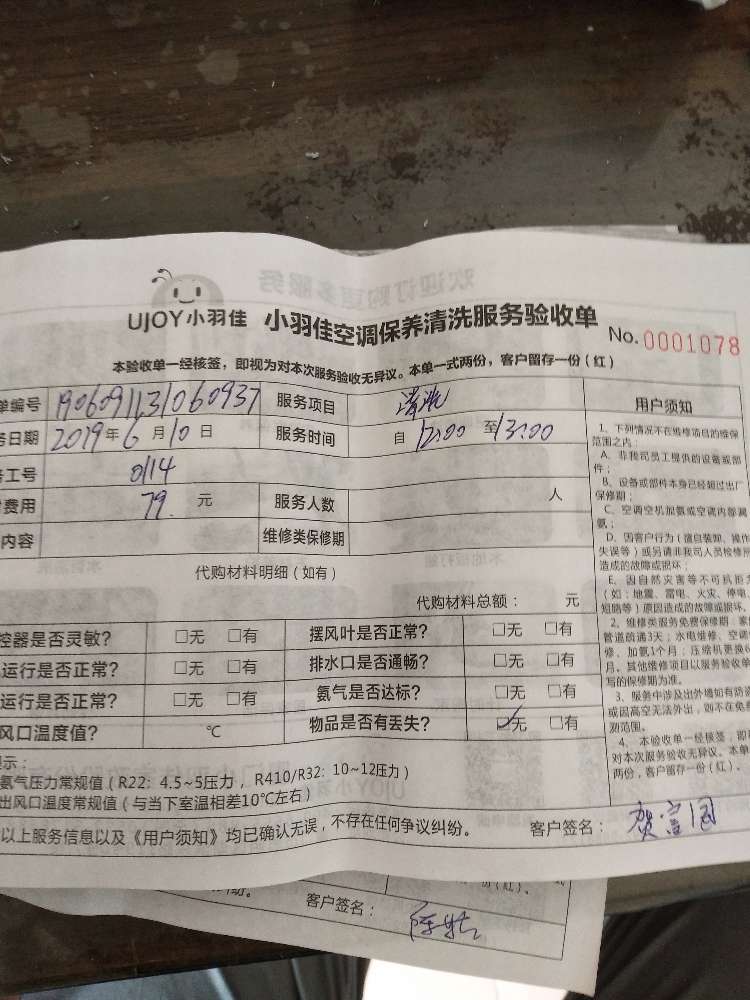 UJOY小羽佳 小羽佳空调保养清洗服务验收单 No.0001078
本验收单一经核签，即视为对本次服务验收无异议。本单一式两份，客户留存一份（红）
单编号 19060911131060937 服务项目 清洗
日期 2019年6月10日 服务时间 自 12:00 至 13:00
工号 0114
费用 79. 元 服务人数 人
内容 维修类保修期
代购材料明细（如有）
代购材料总额： 元
控器是否灵敏？ □无 □有 摆风叶是否正常？ □无 □有
运行是否正常？ □无 □有 排水口是否通畅？ □无 □有
运行是否正常？ □无 □有 氨气是否达标？ □无 □有
风口温度值？ ℃ 物品是否有丢失？ ☑无 □有
示：
氨气压力常规值（R22：4.5~5压力，R410/R32：10~12压力）
出风口温度常规值（与当下室温相差10℃左右）
以上服务信息以及《用户须知》均已确认无误，不存在任何争议纠纷。 客户签名： 贺富国
用户须知
1、下列情况不在维修项目的维保
范围之内：
A、非我司员工提供的设备或部
件；
B、设备或部件本身已经超过出厂
保修期；
C、空调空机加氨或空调内部漏
氨；
D、因客户行为（擅自装卸、操作
失误等）或另请非我司人员检修所
造成的故障或损坏；
E、因自然灾害等不可抗拒力
（如：地震、雷电、火灾、停电、
短路等）原因造成的故障或损坏。
2、维修类服务免费保修期：家
管道疏通3天；水电维修、空调
修、加氨1个月；压缩机更换6
月。其他维修项目以服务验收单
写的保修期为准。
3、服务中涉及出外墙如有防
或因高空无法外出，则不在免
测范围。
4、本验收单一经核签，即
对本次服务验收无异议。本单
两份，客户留存一份（红）。
份（红）、
客户签名：